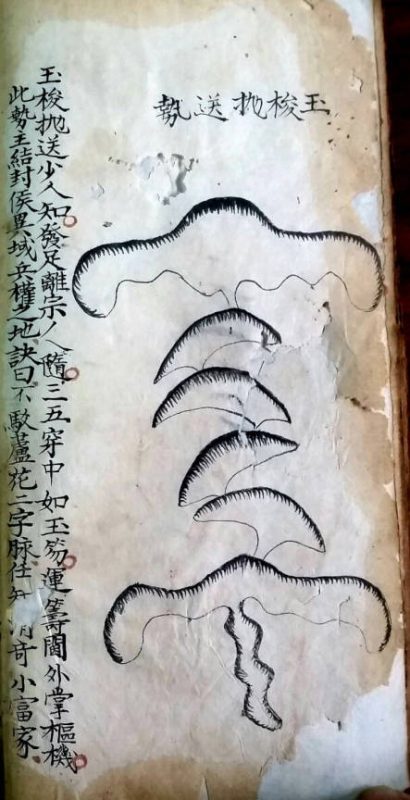 玉梭抛送勢
玉梭抛送少人知發足離宗隨三五穿中如玉笏運籌閫外掌樞機
此勢主結封侯異域兵權之地訣曰不蘆花二字脉任奇小富家